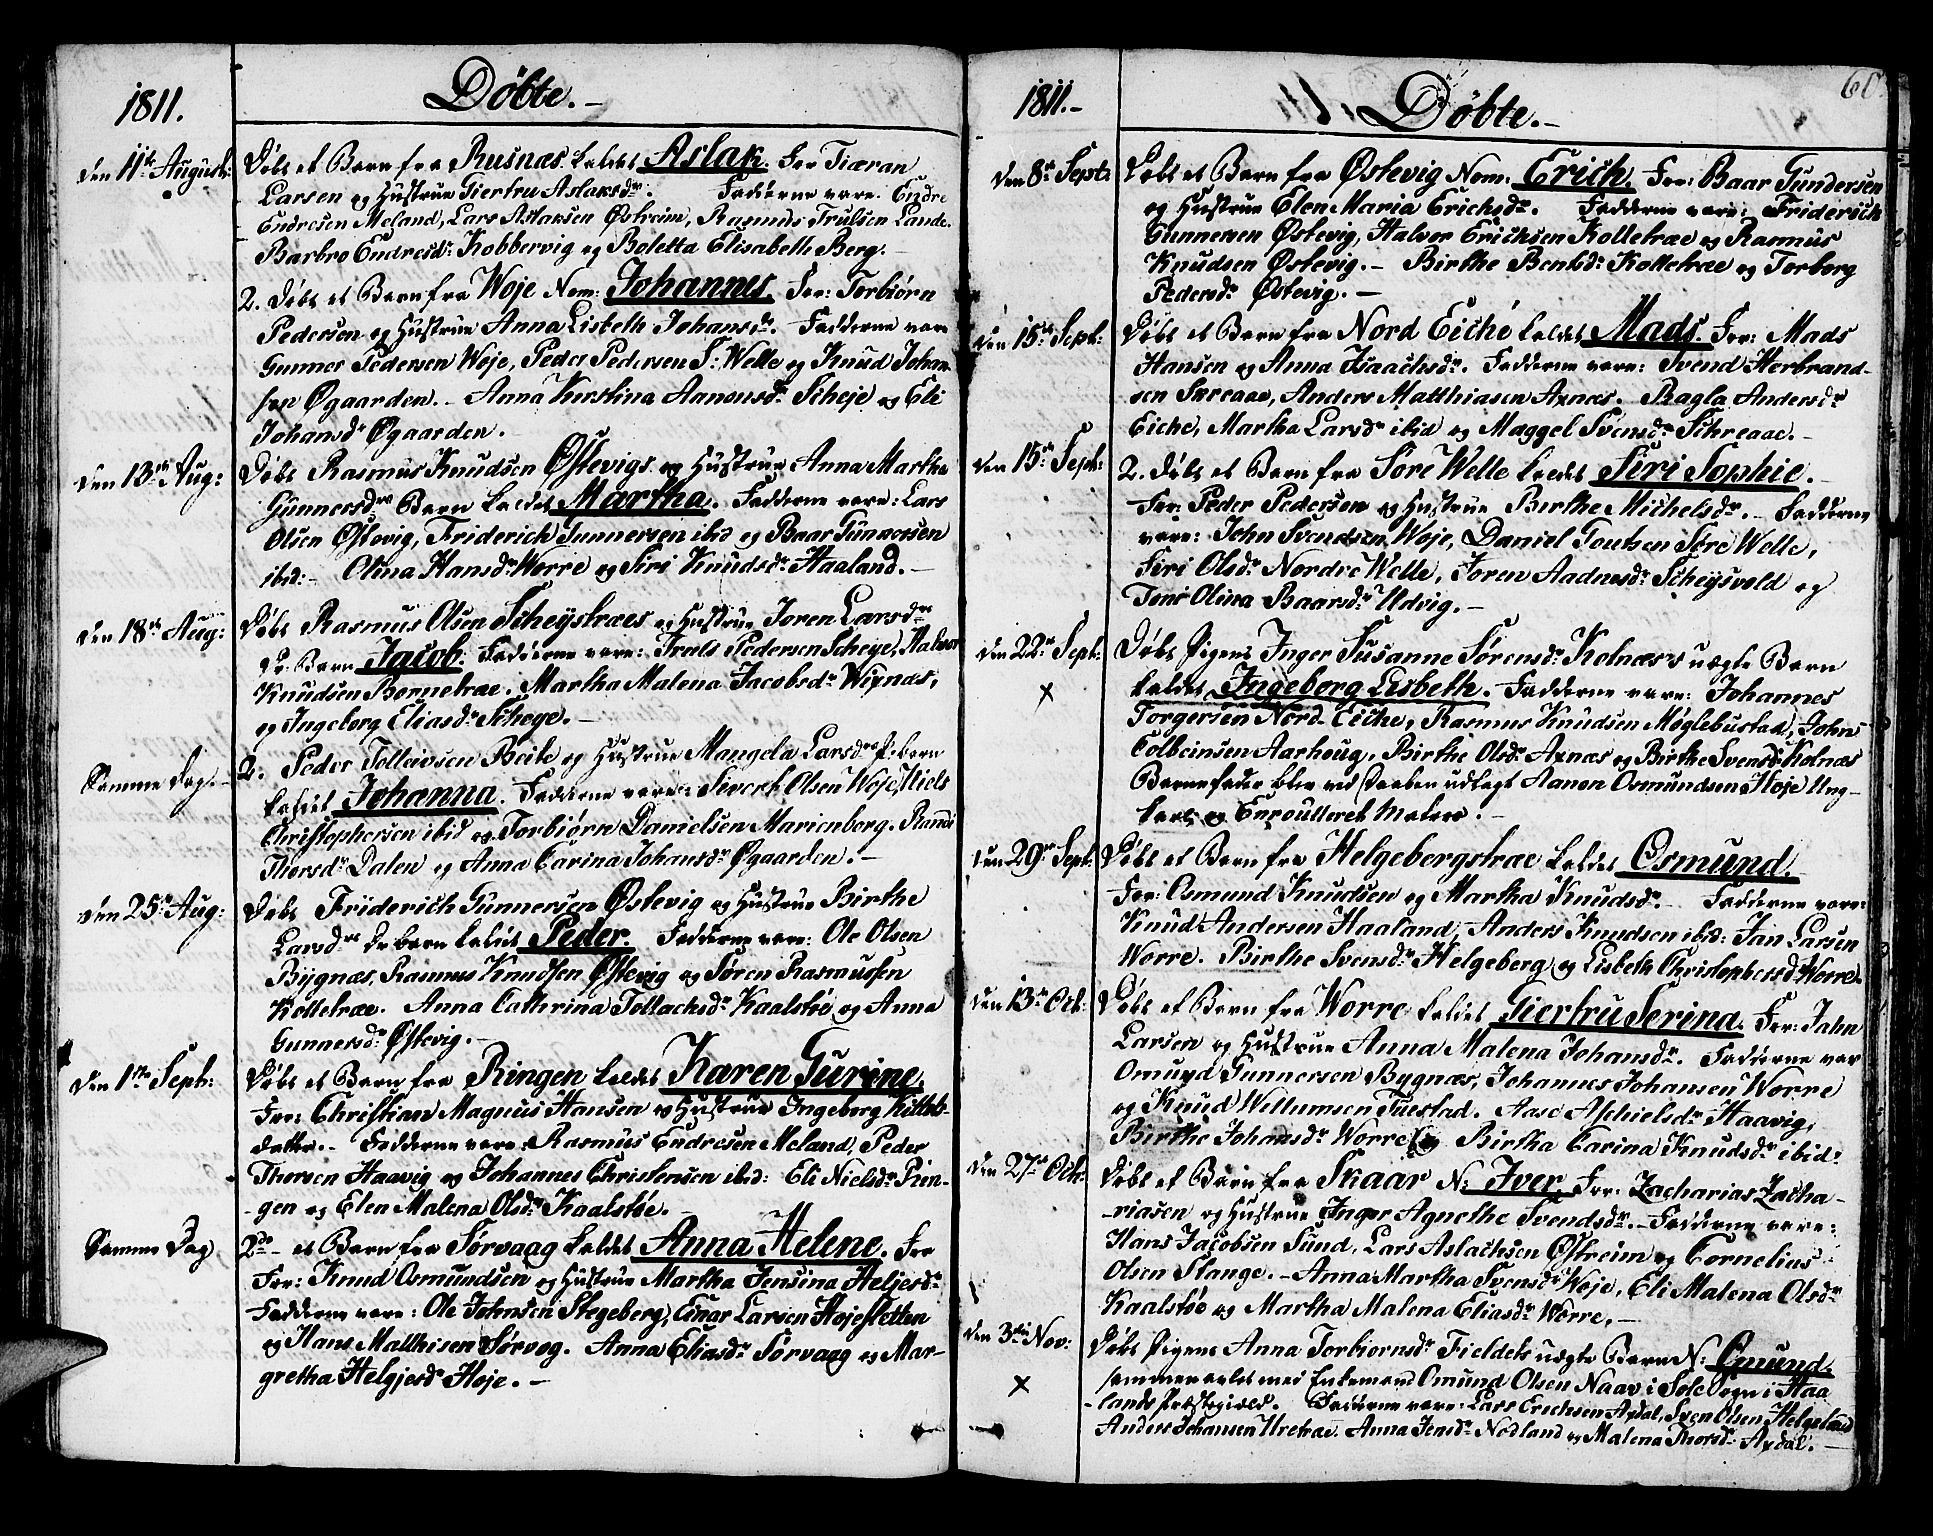 1811.
Døbte. –
den 11te August:
Døbt et Barn fra Rusnæs kaldet Aslak. For Tiæran
Larsen og Hustrue Giertru Aslaksdr. Fadderne vare: Endre
Endresen Meland, Lars Aslaksen Østreim, Rasmus Trulsen Lande.
Barbro Endresdr Kobbervig og Boletta Elisabeth Berg. –
2. Døbt et Barn fra Woje Nom: Johannes. For: Torbiørn
Pedersen og Hustrue Anna Lisbeth Johansdr. Fadderne vare
Gunner Pedersen Woje, Peder Pedersen S: Welle og Knud Johan-
sen Øgaarden. – Anna Kirstina Aanensdr Scheje og Eli
Johansdr Øgaarden.
den 13de Aug:
Døbt Rasmus Knudsen Østevigs og Hustrue Anna Martha
Gunnersdrs Barn kaldet Martha. Fadderne vare: Lars
Olsen Østevig, Friderich Gunnersen ibid og Baar Gunnersen
ibid: – Olina Hansdr Worre og Siri Knudsdr Haaland. –
den 18de Aug:
Døbt Rasmus Olsen Scheystræes og Hustrue Joren Larsdrs
Barn Jacob. Fadderne vare: Truls Pedersen Scheye, Halvor
Knudsen Bornetræ. Martha Malena Jacobsdr Wixnæs,
og Ingeborg Eliasdr Scheye. –
Samme Dag. –
2. Peder Tolleivsen Beite og Hustrue Mangela Larsdrs barn
kaldet Johanna. Fadderne vare: Sivert Olsen Woje, Niels
Christophersen ibid og Torbiørn Danielsen Marienborg. Randi
Thorsdr Dalen og Anna Carina Johansdr Øgaarden. –
den 25de Aug:
Døbt Friderich Gunnersen Østevig og Hustrue Birthe
Larsdrs barn kaldet Peder. Fadderne vare: Ole Olsen
Bygnæs, Rasmus Knudsen Østevig og Søren Rasmussen
Kolletræ. Anna Cathrina Tollachsdr Kaalstøe og Anna
Gunnersdr Østevig. –
den 1ste Sept:
Døbt et Barn fra Ringen kaldet Karen Gurine.
For: Christian Magnus Hansen og Hustrue Ingeborg Kittels-
datter. – Fadderne vare: Rasmus Endresen Meland, Peder
Thorsen Haavig og Johannes Christensen ibid: Eli Nielsdr Rin-
-gen og Elen Malena Olsdr Kaalstøe. –
Samme Dag
2de – et Barn fra Sørvaag kaldet Anna Helene. For
For: Knud Osmundsen og Hustrue Martha Jensina Heljesdr
Fadderne vare: Ole Johnsen Stegeberg, Einar Larsen Hojesletten
og Hans Matthisen Sørvog. Anna Eliasdr Sørvaag og Mar-
gretha Helgjesdr Hoje. –
60.
1811. –
Døbte. –
den 8de Septr
Døbt et Barn fra Østevig Nom: Erich. For: Baar Gundersen
og Hustrue Elen Maria Erichsdr. Fadderne vare: Friderich
Gunnersen Østevig, Halvor Erichsen Kolletræe og Rasmus
Knudsen Østevig. – Birthe Bentsdr Kolletræe og Torborg
Pedersdr Østevig. –
den 15de Sept:
Døbt et Barn fra Nord Eiche kaldet Mads. For: Mads
Hansen og Anna Isaachsdr. Fadderne vare: Svend Herbrand-
sen Skreaae, Anders Matthiasen Axnæs. Ragla Andersdr
Eiche, Martha Larsdr ibid og Maggel Svensdr Schreaae. –
den 15de Sept:
2. Døbt et Barn fra Søre Welle kaldet Siri Sophie. –
For: Peder Pedersen og Hustrue Birthe Michelsdr. – Fadderne
vare: John Svendsen Woje, Daniel Goutsen Søre Welle,
Siri Olsdr Nordre Welle, Joren Aadnesdr Scheysvold og
Tone Olina Baarsdr Udvig. –
den 22de Sept:
x
Døbt Pigens Inger Susanne Sørensdr Kolnæs's uægte Barn
kaldet Ingeborg Lisbeth. Fadderne vare: Johannes
Torgersen Nord-Eiche, Rasmus Knudsen Møglebustad, John
Colbeinsen Aarhoug. Birthe Olsdr Axnæs og Birthe Svensdr Kolnæs
Barnefader blev ved Daaben udlagt Aanon Osmundsen Hoje Ung-
karl og Enroulleret Matros. –
den 29de Sept:
Døbt et Barn fra Helgebergstræe kaldet Osmund.
For: Osmund Knudsen og Martha Knudsdr. – Fadderne vare:
Knud Andersen Haaland, Anders Knudsen ibid: Jan Larsen
Worre. Birthe Svensdr Helgeberg og Lisbeth Christophersdr Worre.
den 13de Oct:
Døbt et Barn fra Worre kaldet Giertru Serina. For: Jahn
Larsen og Hustrue Anna Malena Johansdr. Fadderne var
Omund Gunnersen Bygnæs, Johannes Johansen Worre
og Knud Willumsen Tuestad. Aase Aschielsdr Haavig,
Birthe Johansdr Worre og Birtha Carina Knudsdr ibid:
den 27de Oct:
Døbt et Barn fra Skaar N: Iver. For: Zacharias Zacha-
-riasen og Hustrue Inger Agnethe Svendsdr. – Fadderne vare:
Hans Jacobsen Sund, Lars Aslachsen Østreim og Cornelius
Olsen Stange. – Anna Martha Svensdr Woje, Eli Malena Olsdr
Kaalstøe og Martha Malena Eliasdr Worre. –
den 3die Nov:
x
Døbt Pigens Anna Torbiornsdr Fieldets uægte Barn N: Omund.
sammenavlet med Enkemand Omund Olsen Naav i Sole Sogn i Haa
-lands Præstegield. Fadderne vare: Lars Erichsen Axdal, Sven Olsen Helgeland
Anders Johansen Uretræ. Anna Jensdr Nodland og Malena Thorsdr Axdal. –